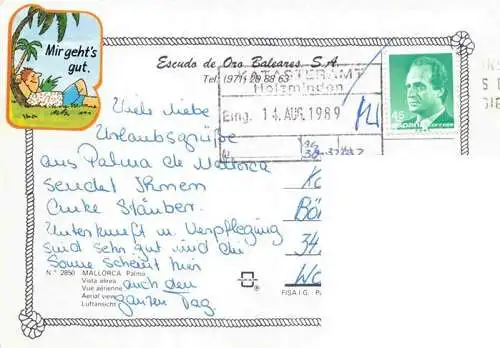 Mir geht's
gut.
Escudo de Oro Baleares. S.A.
Tel. (971) 20 88 63
KATASTERAMT
Holzminden
Eing. 14. AUG. 1989
45
Viele liebe
Urlaubsgrüße
aus Palma de Mallorca
sendet Ihnen
Anke Stäuber.
Unterkunft u. Verpflegung
sind sehr gut und die
Sonne scheint hier
auch den
ganzen Tag.
N.° 2850 MALLORCA Palma
Vista aérea
Vue aérienne
Aerial view
Luftansicht
Bö
34
FISA I.G. - P